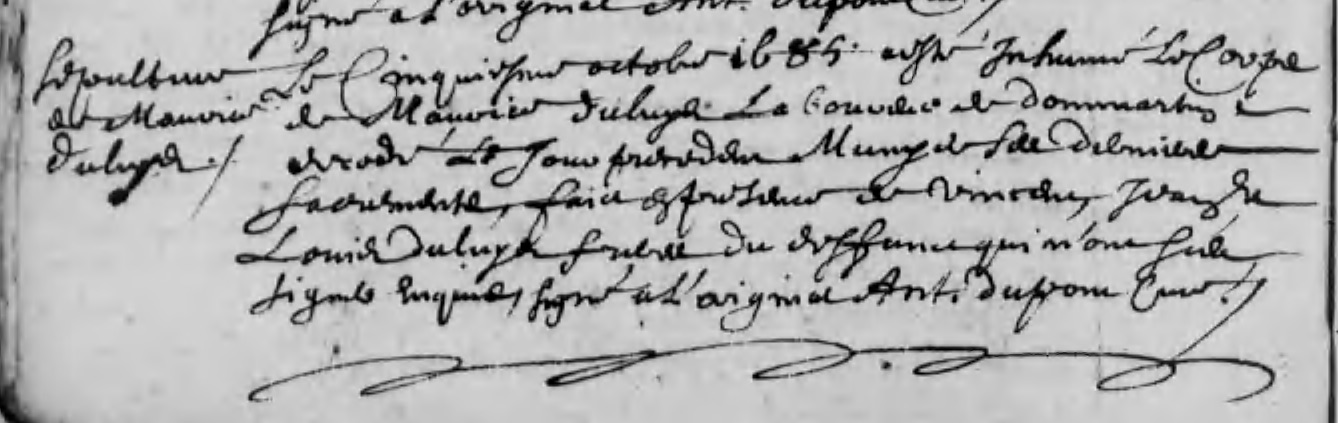 signé a L'original Ant. dupont Curé /
Sepulture Le Cinquiesme octobre 1685 a esté Inhumé Le Corps
de Maurice de Maurice duluys La de dommartin
duluys / decedé Le Jour precedent Muny de Ses derniers
Sacrements, faict en presence de vincent, Jean
Louis duluys freres du deffunct qui n'ont sceu
signés Enquis, signé a L'original Ant. dupont Curé /